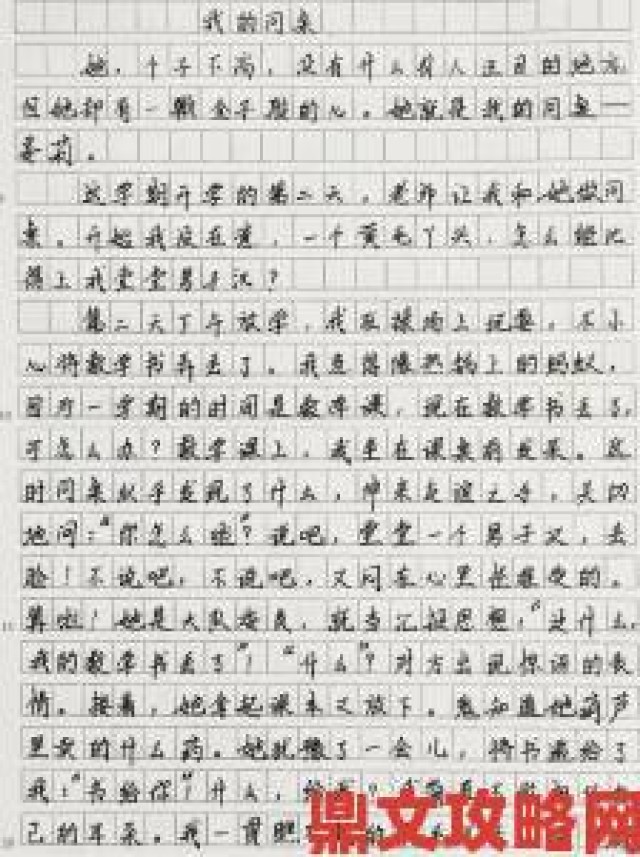 我的同桌
她，个子不高，没有什么引人注目的地方
但她却有一颗金子般的心。她就是我的同桌——
莉。
这学期开学的第二天，老师让我和她做同
桌。开始我没在意，一个黄毛丫头，怎么能比
得上我堂堂男子汉？
第二天下午放学，我在操场上玩耍，不小
心将数学书弄丢了。我急得像热锅上的蚂蚁，
一学期的时间是数学课，现在数学书丢了，
可怎么办？数学课上，我坐在课桌前发呆。这
时同桌似乎发现了什么，伸来友谊之手，关切
地问：“你怎么啦”？说吧，堂堂一个男子汉，丢
脸！不说吧，不说吧，又闷在心里怪难受的。
算啦！她是大队委员，就当汇报思想，“没什么，
我的数学书丢了”！“什么”？对方出现惊讶的表
情。接着，她拿起课本又放下。鬼知道她葫芦
里卖的什么药。她犹豫了一会儿，将书递给了
我：“书给你”什么，给我？
己的耳朵。我一贯胆
鼎文攻略网